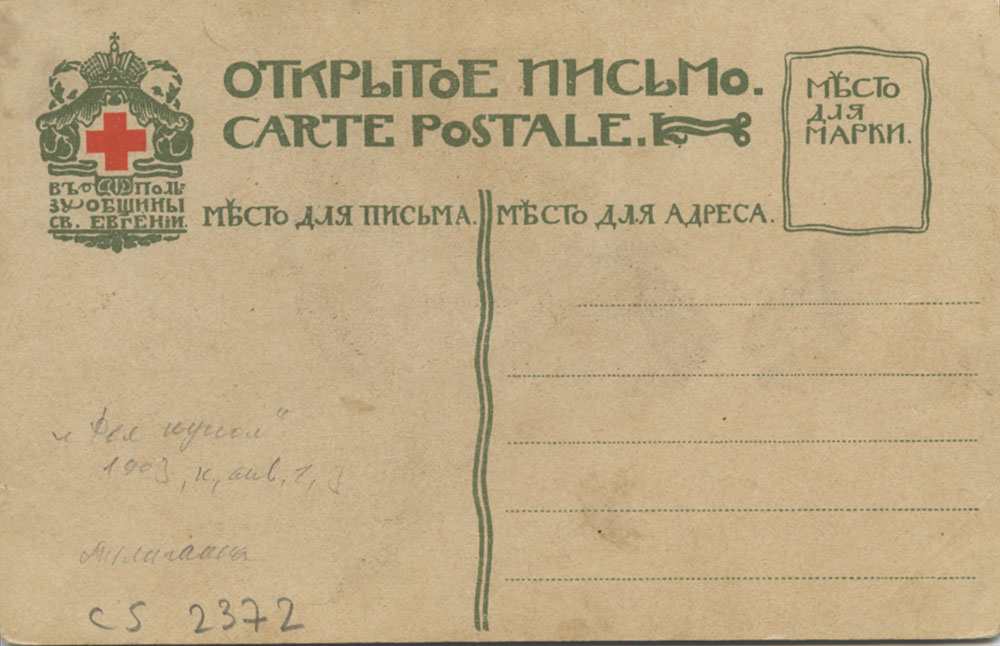 ОТКРЫТОЕ ПИСЬМО.
CARTE POSTALE.
МѢСТО
ДЛЯ
МАРКИ.
ВЪ ПОЛЬ
ЗУ ОБЩИНЫ
СВ. ЕВГЕНІИ.
МѢСТО ДЛЯ ПИСЬМА.
МѢСТО ДЛЯ АДРЕСА.
„Фея кукол“
1903, к, акв,
CS 2372